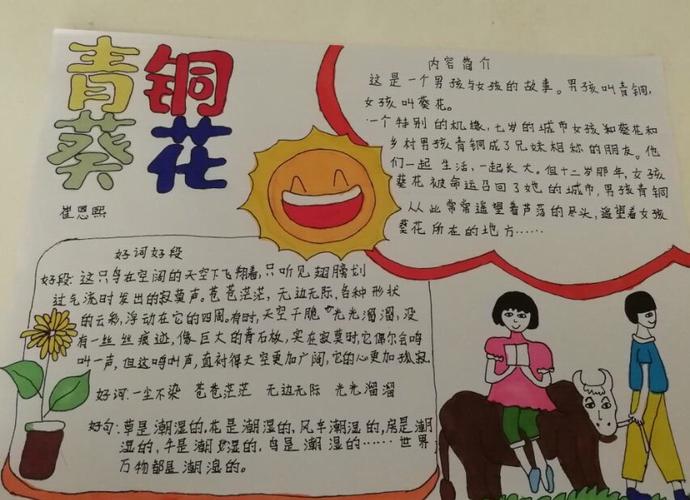 青铜
葵花
崔恩熙
内容简介
这是一个男孩与女孩的故事。男孩叫青铜,
女孩叫葵花。
一个特别的机缘,七岁的城市女孩和葵花和
乡村男孩青铜成了兄妹相称的朋友。他
们一起生活,一起长大。但十二岁那年,女孩
葵花被命运召回了她的城市,男孩青铜
从此常常遥望着芦荡的尽头,遥望着女孩
葵花所在的地方……
好词好段
好段:这只鸟在空阔的天空下飞翔着,只听见翅膀划
过气流时发出的寂寞声。苍苍茫茫,无边无际,各种形状
的云彩,浮动在它的四周。有时,天空干脆光光溜溜,没
有一丝丝痕迹,像巨大的青石板,实在寂寞时,它偶尔会鸣
叫一声,但这鸣叫声,直衬得天空更加广阔,它的心更加孤寂
好词:一尘不染 苍苍茫茫 无边无际 光光溜溜
好句:草是潮湿的,花是潮湿的,风车潮湿的,房是潮
湿的,牛是潮湿的,鸟是潮湿的……世界
万物都是潮湿的。